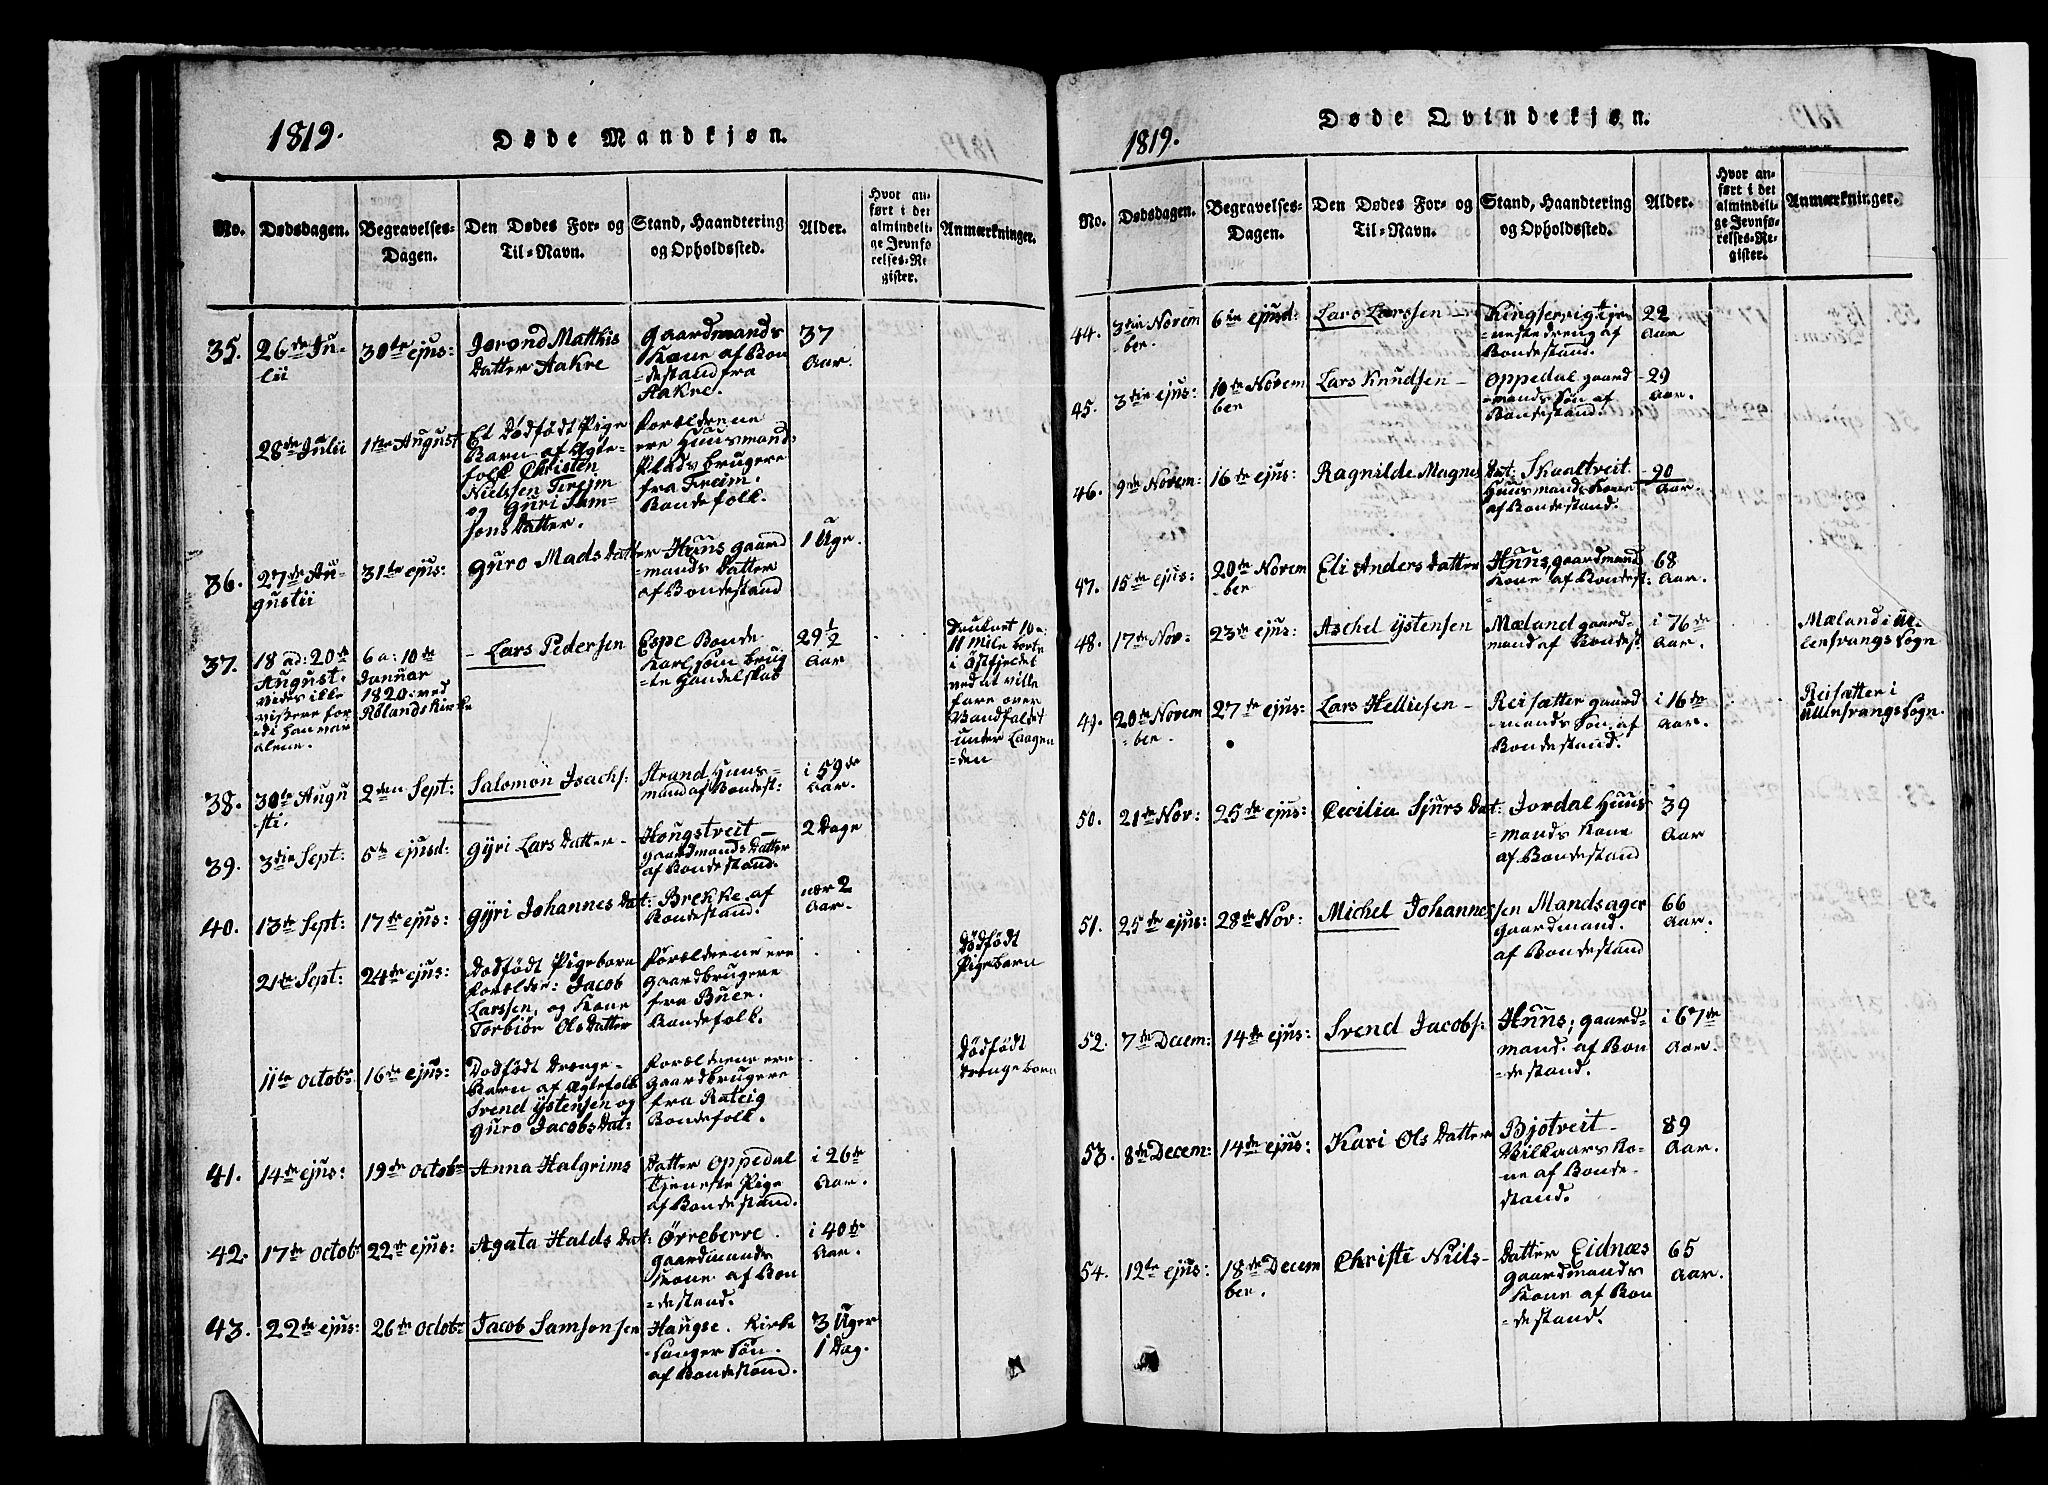 1819.
Døde Mandkjøn.
No.
Dødsdagen.
Begravelses-
Dagen.
Den Dødes For- og
Til-Navn.
Stand, Haandtering
og Opholdssted.
Alder.
Hvor an-
ført i det
almindeli-
ge Jevnfø
relses-Re
gister.
Anmærkninger.
35.
26de Ju-
lii
30te ejus:
Jorond Matthis
Datter Aakre
Gaardmands
Kone af Bon
=destand fra
Aakre.
37
Aar.
28de Julii
1te August
Et Dödfödt Pige
Barn af Ægte-
folk Christen
Nielssen Trejm
og Guri Sam-
sons Datter.
Forældrene
ere Huusmand-
Plads brugere
fra Treim.
Bondefolk.
36.
27de Au-
gustii
31te ejus:
Guro Mads Datter
Huus gaard
=mands Datter
af Bondestand
1 Uge.
37.
18 ad: 20de
August.
vides ikke
vissere for
=di han var
alene.
6 a: 10de
Januar
1820: ved
Rølands Kirke
- Lars Pedersen
Espe Bonde
Karl som brug
=te Handelskab
29 1/2
Aar
Druknet 10 a:
11 Mile borte
i Østfjeldet
ved at ville
fare over
Vandfaldet
under Laagen
=den
38.
30te Augu
sti.
2den Sept:
Salomon Isachs:
Strand Huus-
mand af Bondest:
i 59de
Aar.
39.
3die Sept:
5te ejusd:
Gÿri Lars Datter-
Hougstveit-
gaardmands Datter
af Bondestand.
2 Dage
40.
13de Sept:
17de ejus:
Gÿri Johannes Dat:
Brekke af
Bondestand.
nær 2
Aar.
21de Sept:
24de ejus:
Dodfödt Pigebarn
Forældre: Jacob
Larssen, og Kone
Torbiör Ols Datter
Forældrene ere
Gaardbrugere
fra Buer.
Bondefolk.
Dödfödt
Pigebarn
11te Octobr.
16de ejus:
Dodfödt Drenge-
Barn af Ægtefolk
Svend Ÿstensen og
Guro Jacobs Dat:
Forældrene ere
Gaardbrugere
fra Rateig
Bondefolk.
Dödfödt
Drengebarn
41.
14de ejus:
19de Octobr
Anna Halgrims
Datter Oppedal
Tjeneste Pige
af Bondestand.
i 26de
Aar.
42.
17de Octob
22de ejus:
Agata Halds Dat:
Örreberre.
gaardmands
Kone af Bon
=destand.
i 40de
Aar.
43.
22de ejus:
26de Octobr
Jacob Samsonsen
Haugse. Kirke
=sanger Søn.
af Bondestand.
3 Uger
1 Dag.
1819.
Døde Qvindekjøn.
No.
Dødsdagen.
Begravelses-
Dagen.
Den Dødes For- og
Til-Navn.
Stand, Haandtering
og Opholdssted.
Alder.
Hvor an-
ført i det
almindeli-
ge Jevnfø-
relses-Re-
gister.
Anmærkninger.
44.
3die Novem
ber.
6te ejusd:
Lars Larssen
Kingservig tje-
=nestedreng af
Bondestand.
22
Aar
45.
3die ejus:
10de Novem
ber
Lars Knudsen -
Oppedal gaard
=mands Søn af
Bondestand.
29
Aar.
46.
9de Novem:
16de ejus:
Ragnilde Magnes
Dat: Skaaltveit
Huusmands Kone
af Bondestand.
90
Aar.
47.
15de ejus:
20de Novem
-ber
Eli Anders Datter
Huus, gaardmand
Kone af Bondest:
68
Aar.
48.
17de Nov.
23de ejus:
Aschel Ÿstensen
Mæland gaard-
mand af Bondest.
i 76de
Aar.
Mæland i Ul-
lensvangs Sogn
49.
20de Novem
=ber.
27de ejus:
Lars Helliesen -
Reisæter gaard
=mands Søn af
Bondestand.
i 16de
Aar.
Reisæter i
Ullensvangs Sogn.
50.
21de Nov:
25de ejus:
Cecilia Sjurs Dat:
Jordal Huus
=mands Kone
af Bondestand
39
Aar
51.
25de ejus:
28de Nov:
Michel Johannessen
Mandsager
gaardmand.
af Bondestand
66
Aar.
52.
7de Decem:
14de ejus:
Svend Jacobs:
Huus; gaard-
mand. af Bon
=destand.
i 67de
Aar.
53.
8de Decem:
14de ejus:
Kari Ols Datter
Bjotveit-
Vilkaars Ko-
ne af Bonde-
stand.
89
Aar.
54.
12te ejus:
18de Decem
ber.
Christi Niels-
Datter Eidnæs
Gaardmands
Kone af Bon
=destand.
65
Aar.